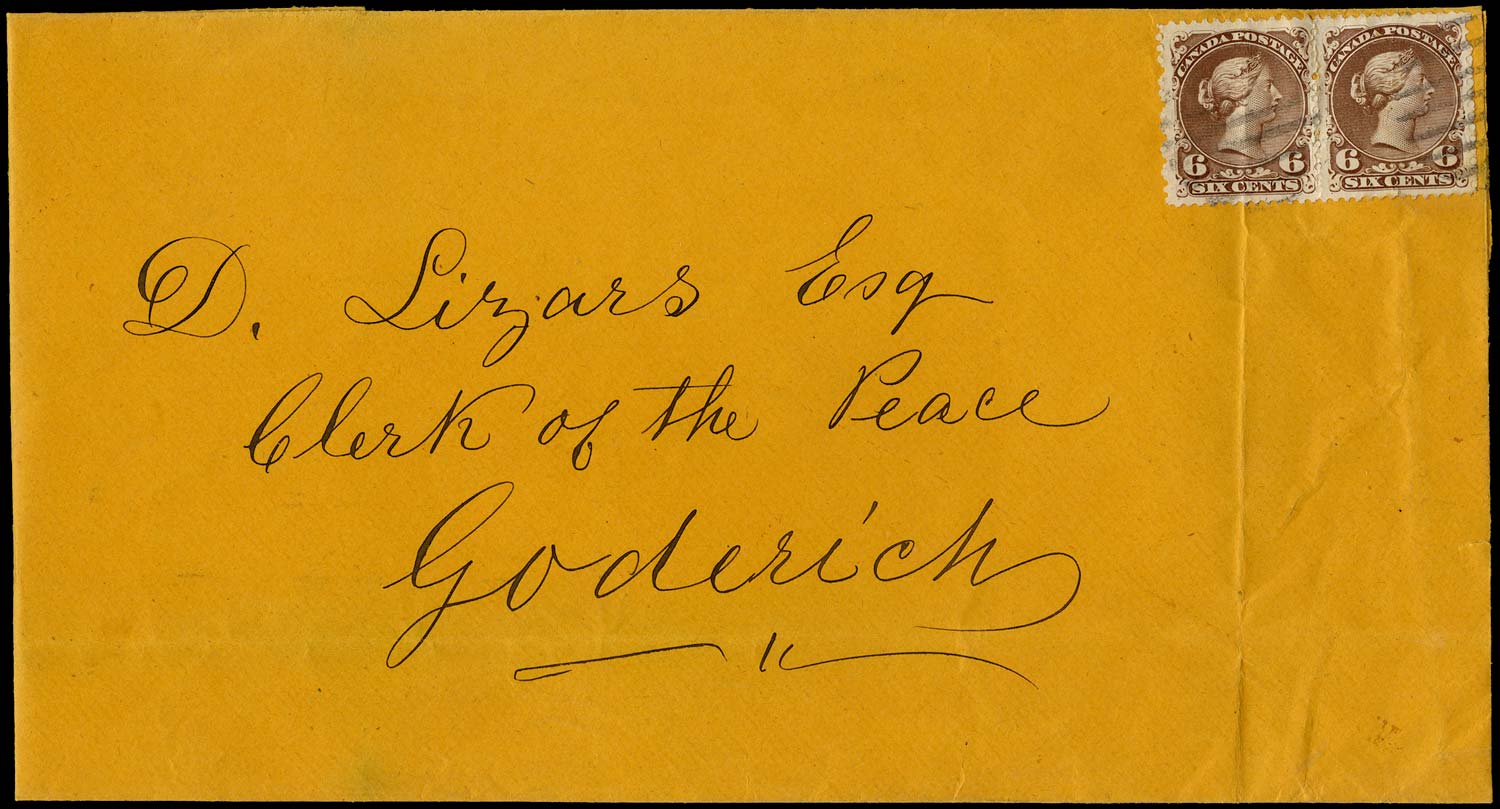 CANADA POSTAGE CANADA POSTAGE
6 6 6 6
SIX CENTS SIX CENTS
D. Lizars Esq
Clerk of the Peace
Goderich